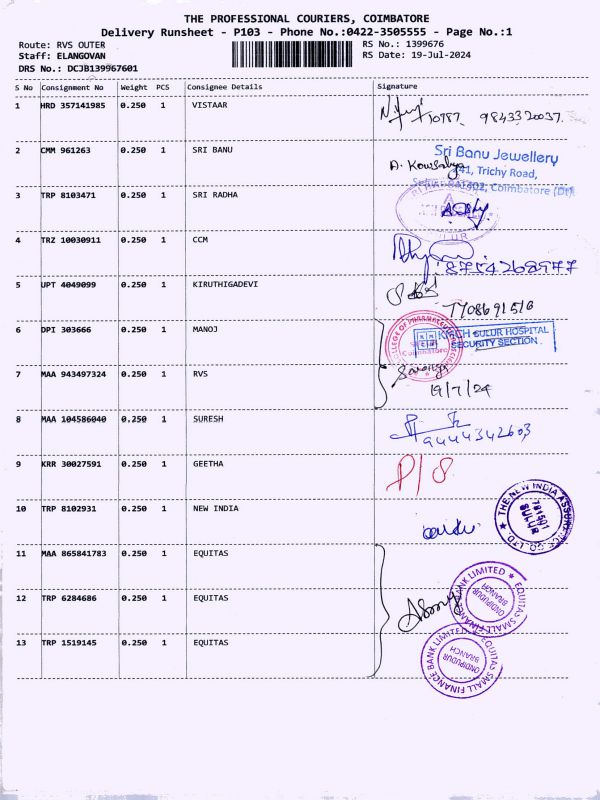 THE PROFESSIONAL COURIERS, COIMBATORE
Delivery Runsheet - P103 - Phone No.:0422-3505555 - Page No.:1
Route: RVS OUTER
RS No.: 1399676
Staff: ELANGOVAN
RS Date: 19-Jul-2024
DRS No.: DCJB139967601
S No Consignment No Weight PCS Consignee Details Signature
1 HRD 357141985 0.250 1 VISTAAR 10787 9843320037
2 CMM 961263 0.250 1 SRI BANU
Sri Banu Jewellery
41, Trichy Road,
Coimbatore (Dt)
3 TRP 8103471 0.250 1 SRI RADHA
SULUR
4 TRZ 10030911 0.250 1 CCM
8754268977
5 UPT 4049099 0.250 1 KIRUTHIGADEVI
7708691516
6 DPI 303666 0.250 1 MANOJ
COLLEGE OF
Coimbatore
SULUR HOSPITAL
SECURITY SECTION
7 MAA 943497324 0.250 1 RVS
19/7/24
8 MAA 104586040 0.250 1 SURESH
9444342603
9 KRR 30027591 0.250 1 GEETHA P/8
10 TRP 8102931 0.250 1 NEW INDIA
THE NEW INDIA ASSURANCE CO. LTD.
781501
SULUR
11 MAA 865841783 0.250 1 EQUITAS
12 TRP 6284686 0.250 1 EQUITAS
EQUITAS SMALL FINANCE BANK LIMITED
ONDIPUDUR
BRANCH
13 TRP 1519145 0.250 1 EQUITAS
EQUITAS SMALL FINANCE BANK LIMITED
ONDIPUDUR
BRANCH